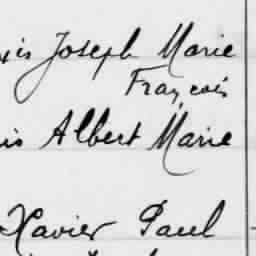 is Joseph Marie
François
is Albert Marie
Xavier Paul